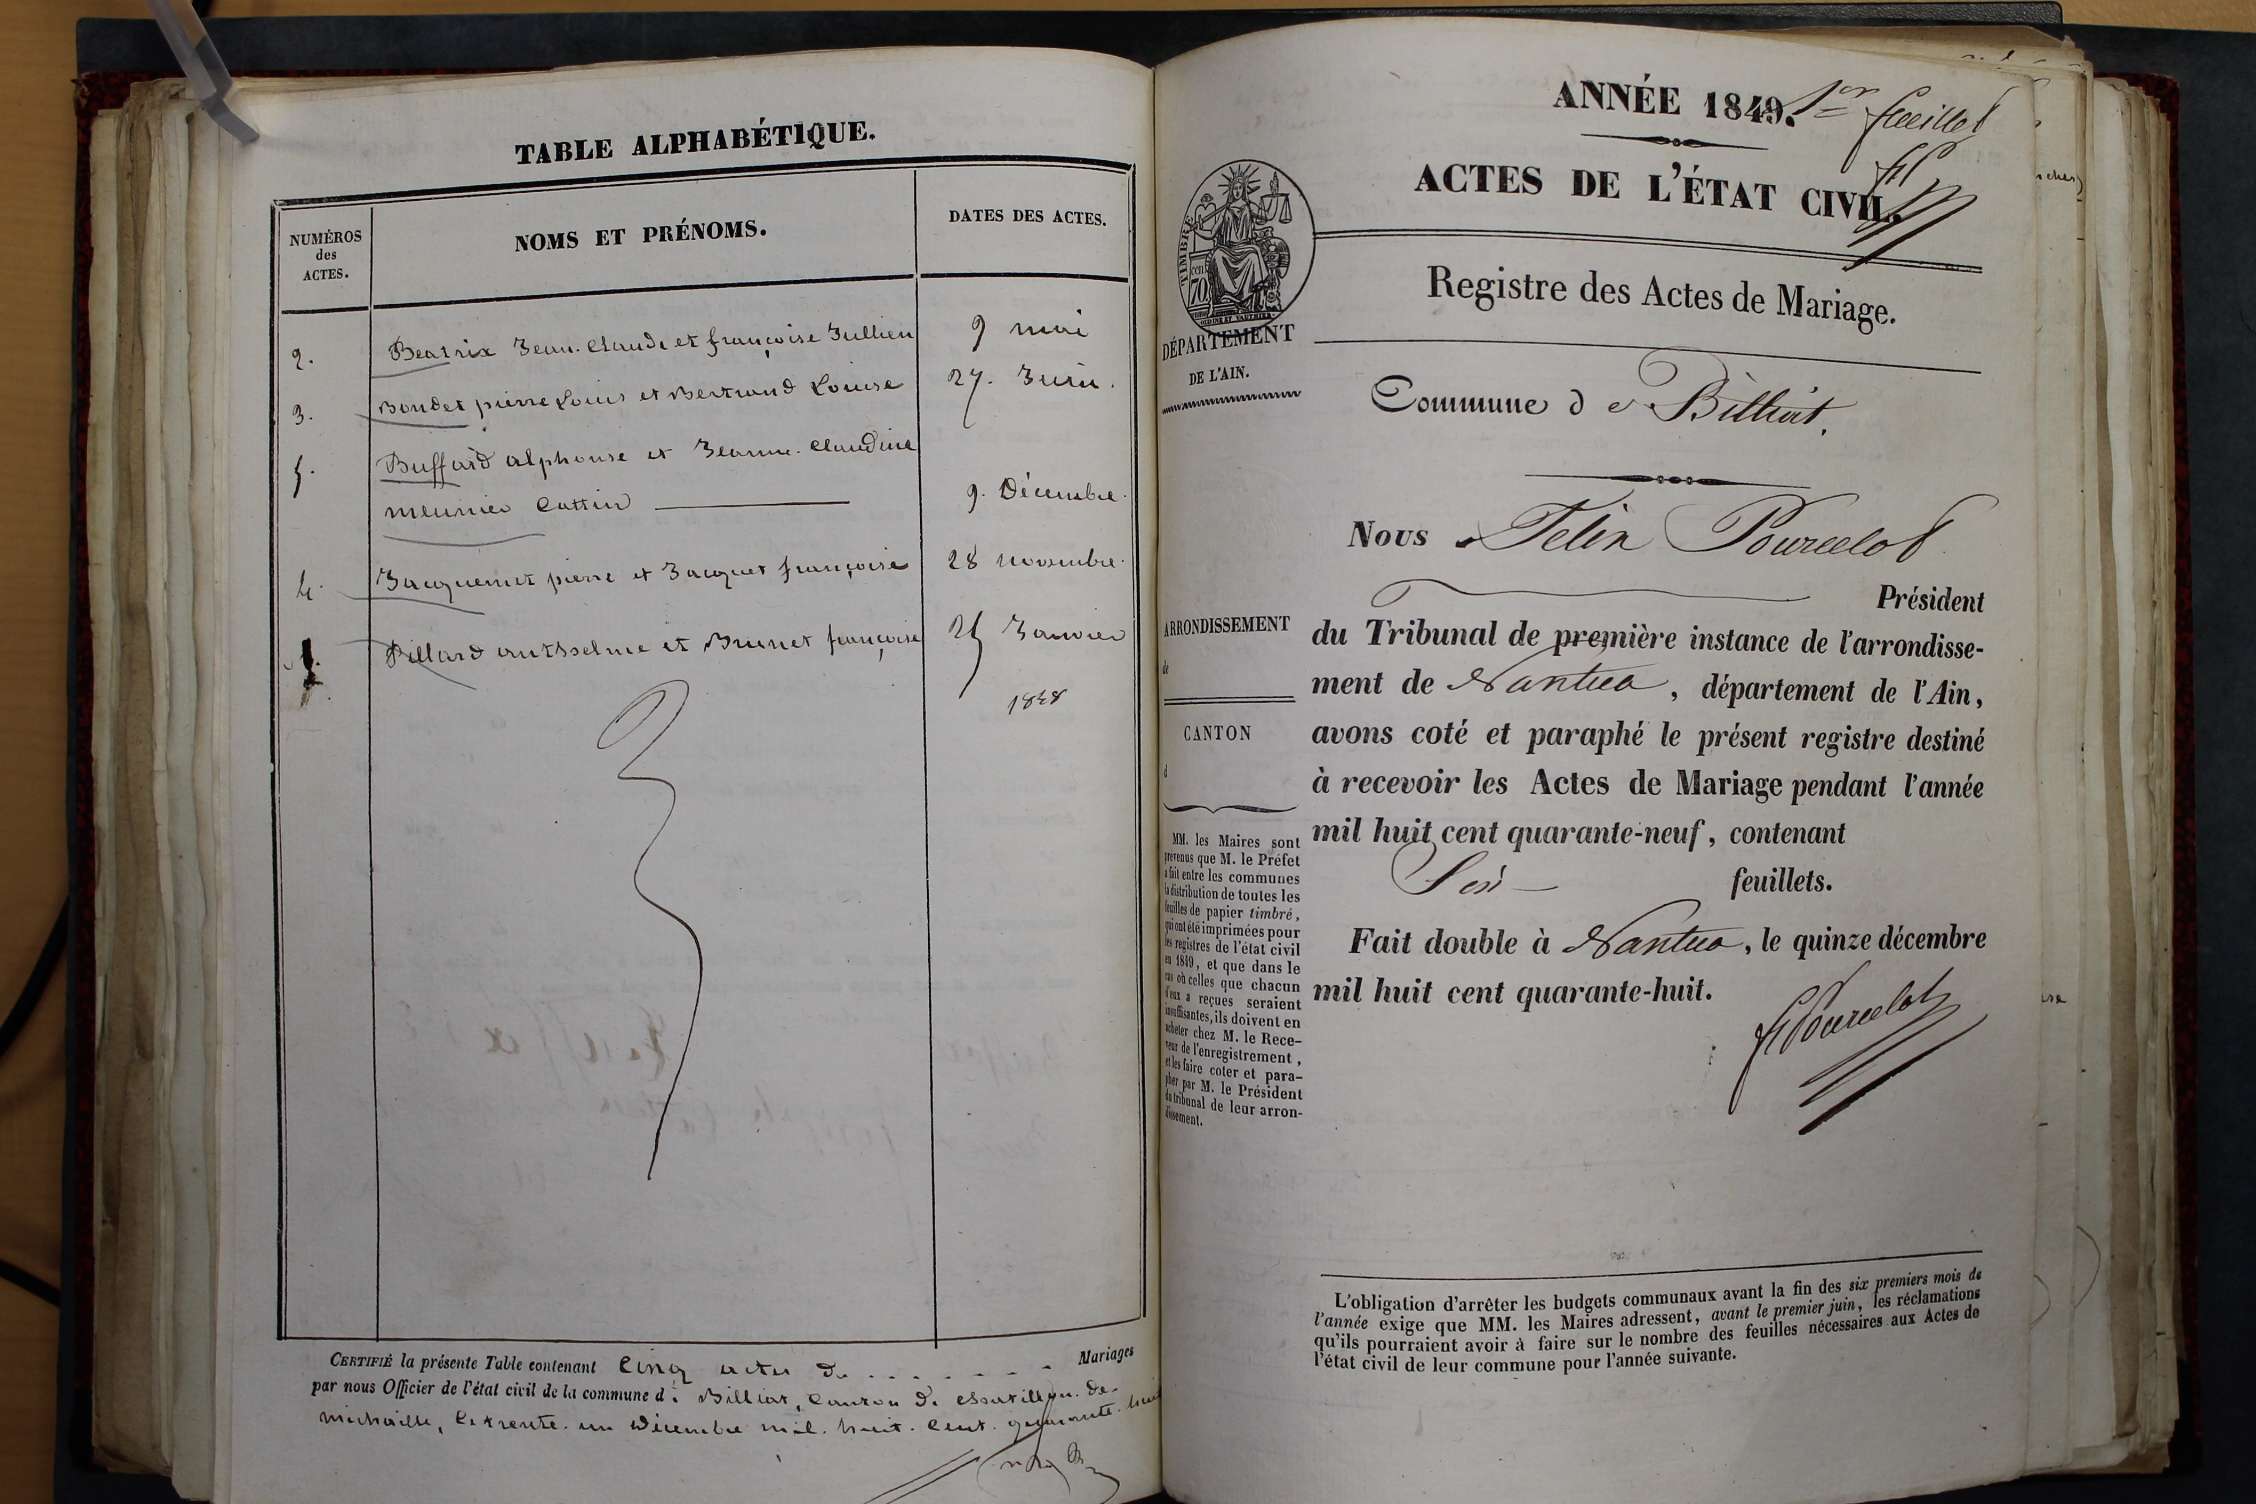 TABLE ALPHABÉTIQUE.
NUMÉROS
des
ACTES.
NOMS ET PRÉNOMS.
DATES DES ACTES.
2. Beatrix Jean. Claude et françoise Jullien 9 mai
3. Boudet pierre Louis et Bertrand Louise 27. Juin.
5. Buffard alphonse et Jeanne. Claudine
meunier Cattin 9. Décembre.
4. Jacquemet pierre et Jacquet françoise 28 novembre.
1. Pillard anthelme et Brunet françoise 25 Janvier
1848
CERTIFIÉ la présente Table contenant Cinq actes de Mariages
par nous Officier de l'état civil de la commune d. Billiat, Canton de chatillon. de.
michaille, le trente. un Décembre mil. huit. Cent. quarante. huit
ANNÉE 1849.
1er feuillet
ACTES DE L'ÉTAT CIVIL.
TIMBRE
70
Registre des Actes de Mariage.
DÉPARTEMENT
DE L'AIN.
Commune de Billiat.
Nous Felix Pourcelot
Président
ARRONDISSEMENT
de
CANTON
d
du Tribunal de première instance de l'arrondisse-
ment de Nantua, département de l'Ain,
avons coté et paraphé le présent registre destiné
à recevoir les Actes de Mariage pendant l'année
mil huit cent quarante-neuf, contenant
Six feuillets.
Fait double à Nantua, le quinze décembre
mil huit cent quarante-huit.
fPourcelot
MM. les Maires sont
prévenus que M. le Préfet
a fait entre les communes
la distribution de toutes les
feuilles de papier timbré,
qui ont été imprimées pour
les registres de l'état civil
en 1849, et que dans le
cas où celles que chacun
d'eux a reçues seraient
insuffisantes, ils doivent en
acheter chez M. le Rece-
veur de l'enregistrement,
et les faire coter et para-
pher par M. le Président
du tribunal de leur arron-
dissement.
L'obligation d'arrêter les budgets communaux avant la fin des six premiers mois de
l'année exige que MM. les Maires adressent, avant le premier juin, les réclamations
qu'ils pourraient avoir à faire sur le nombre des feuilles nécessaires aux Actes de
l'état civil de leur commune pour l'année suivante.